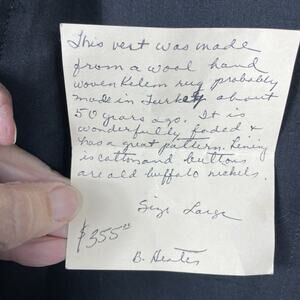 This vest was made
from a wool hand
woven Kelem rug probably
made in Turkey about
50 years ago. It is
wonderfully faded &
has a great pattern. Lining
is cotton and buttons
are old buffalo nickels.
Size Large
$355.00
B.